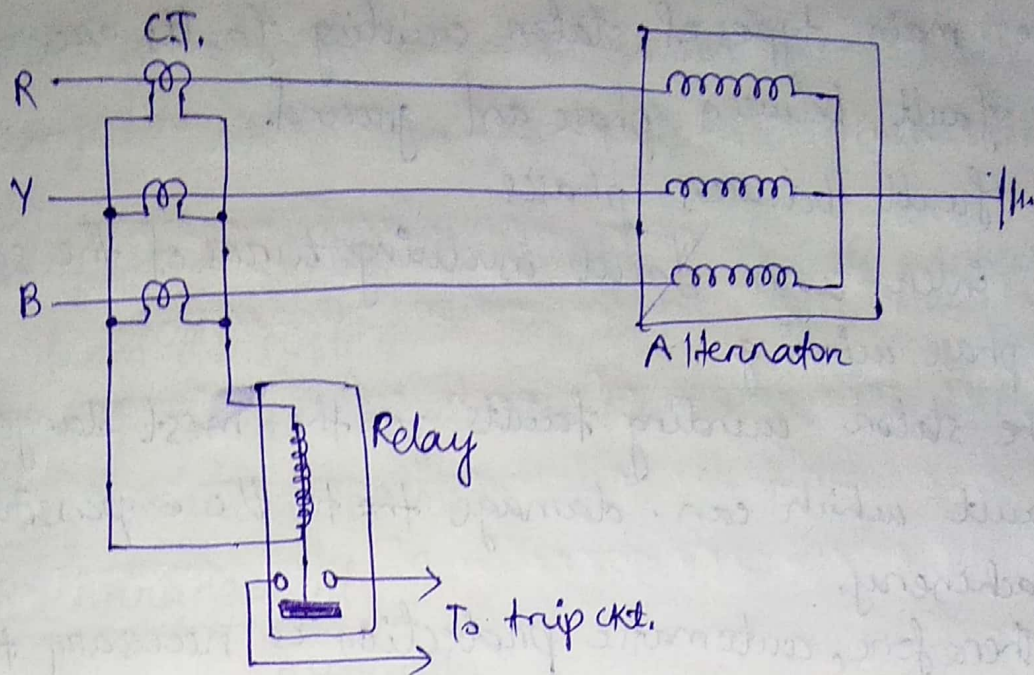 C.T.
R
Y
B
Alternator
Relay
To trip ckt.